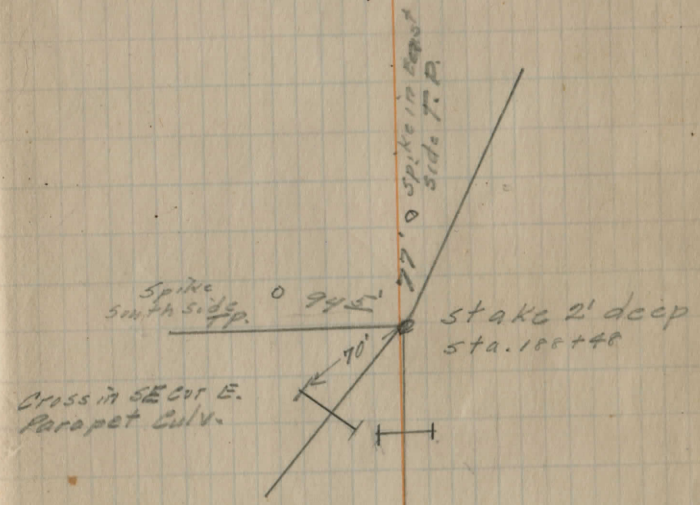 Spike in East
side T.P.
77'
Spike
South side
Tp.
94.5'
stake 2' deep
sta. 188+48
70'
Cross in SE Cor E.
Parapet Culv.